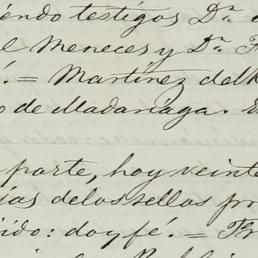 iendo testigos Dn.
el Meneces y Dn. F
é. = Martinez del R
o de Madariaga.
parte, hoy veinte
ias de los sellos pr
ido: doy fé. = Fr